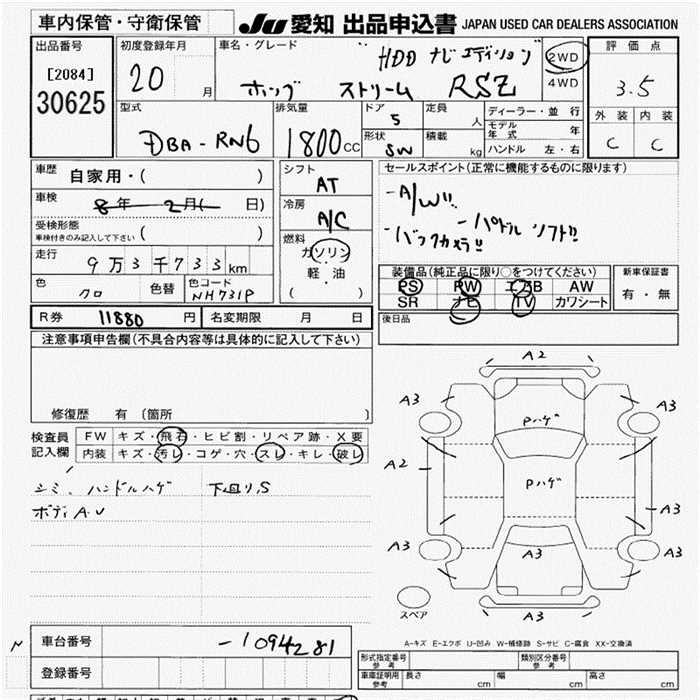 車内保管・守衛保管
JU 愛知 出品申込書 JAPAN USED CAR DEALERS ASSOCIATION
出品番号
[2084]
30625
初度登録年月
20 月
車名・グレード
HDD ナビ エディション
ホンダ ストリーム RSZ
2WD
4WD
評価点
3.5
外装 内装
C C
型式
DBA-RN6
排気量
1800 CC
ドア
5
定員
人
形状
SW
積載
kg
ディーラー・並 行
モデル年式 年
ハンドル 左・右
車歴
自家用・( )
車検
8年 2月( 日)
受検形態
車検付きのみ記入して下さい ( )
走行
9万3千733km
色
クロ
色替
色コード
NH731P
シフト
AT
冷房
A/C
燃料
ガソリン
・
軽・油
( )
セールスポイント(正常に機能するものに限ります)
-A/W!!
-パドルシフト!!
-バックカメラ!!
装備品(純正品に限り○をつけてください)
PS PW エアB AW
SR ナビ TV カワシート
新車保証書
有・無
後日品
R券 11880 円
名変期限 月 日
注意事項申告欄(不具合内容等は具体的に記入して下さい)
修復歴 有 〔箇所 〕
検査員記入欄
FW キズ・飛石・ヒビ割・リペア跡・X要
内装 キズ・汚レ・コゲ・穴・スレ・キレ・破レ
シミ、ハンドルハゲ 下回りS
ボディA.U
A2
A3 A3
Pハゲ
A2
Pハゲ
A3
A3 A3 A3
A3
スペア
A-キズ E-エクボ U-凹み W-補修跡 S-サビ C-腐食 XX-交換済
車台番号 -1094281
登録番号
型式指定番号
参考
類別区分番号
参考
車庫証明用
参考
長さ cm 幅 cm 高さ cm